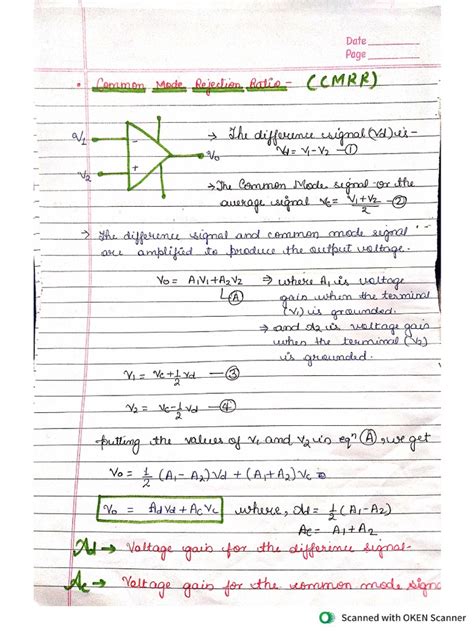 Date
Page
• Common Mode Rejection Ratio - (CMRR)
V1
-
→ The difference signal (Vd) is -
Vd = V1-V2 - ①
V0
+
V2
→ The Common Mode signal or the
average signal Vc = V1+V2/2 - ②
→ The difference signal and common mode signal
are amplified to produce the output voltage.
V0 = A1V1+A2V2 → where A1 is voltage
Ⓐ gain when the terminal
(V1) is grounded.
→ and A2 is voltage gain
when the terminal (V2)
is grounded.
V1 = Vc+1/2 Vd - ③
V2 = Vc-1/2 Vd - ④
putting the values of V1 and V2 in eqn Ⓐ, we get
V0 = 1/2 (A1-A2)Vd + (A1+A2)Vc
V0 = AdVd+AcVc where, Ad = 1/2 (A1-A2)
Ac = A1+A2
Ad → Voltage gain for the difference signal.
Ac → Voltage gain for the common mode signa
Scanned with OKEN Scanner